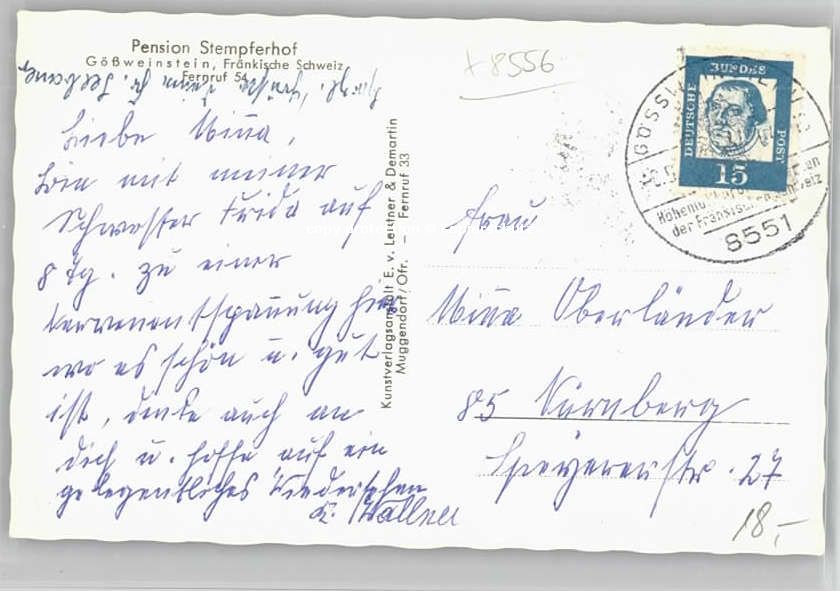 Pension Stempferhof
Gößweinstein, Fränkische Schweiz
Fernruf 54
Liebe Mina,
bin mit meiner
Schwester Frida auf
8 Tg. zu einer
Nervenentspannung hier
wo es schön u. gut
ist, denke auch an
Dich u. hoffe auf ein
gelegentliches Wiedersehen
K. Wallner
Kunstverlagsanstalt E. v. Leutner & Demartin
Muggendorf/Ofr. — Fernruf 33
+ 8556
DEUTSCHE BUNDESPOST
15
Höhenluft
der Fränkischen Schweiz
8551
Frau
Mina Oberländer
85 Nürnberg
Speyererstr. 27
18,-